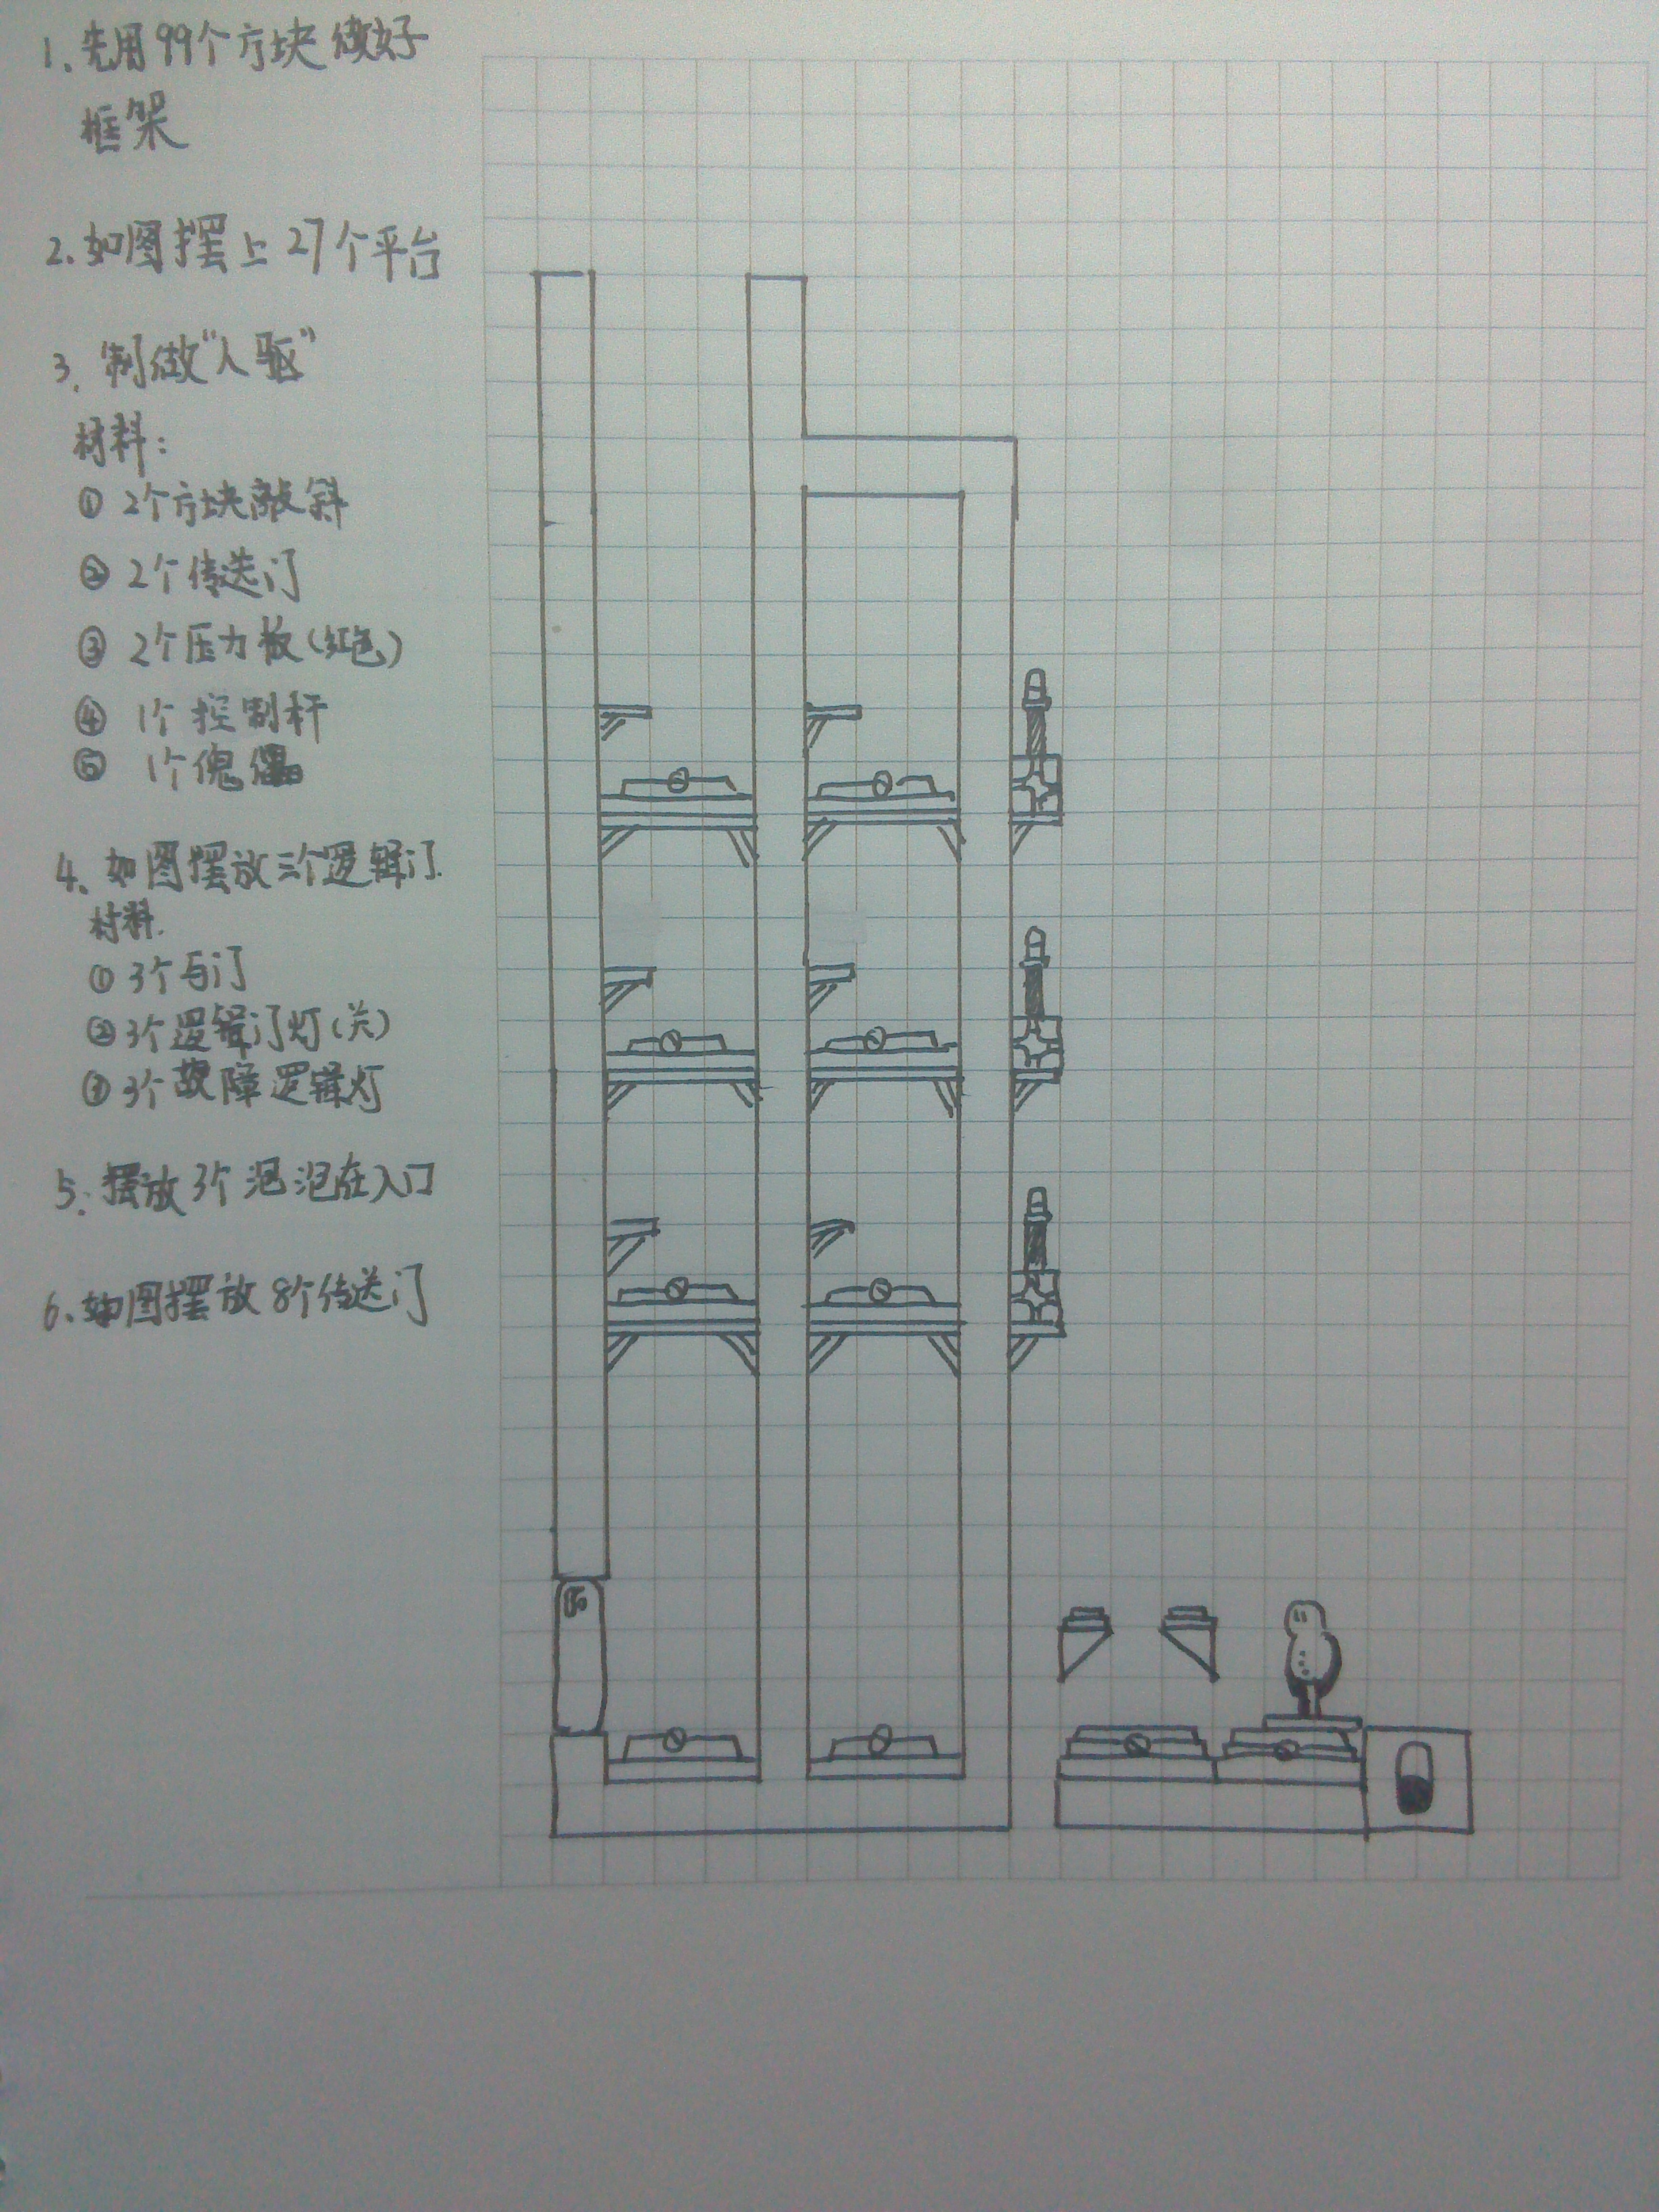 1、先用99个方块做好
框架
2、如图摆上27个平台
3、制做“人驱”
材料：
① 2个方块敲斜
② 2个传送门
③ 2个压力板（红色）
④ 1个控制杆
⑤ 1个傀儡
4、如图摆放三个逻辑门.
材料.
① 3个与门
② 3个逻辑门灯（关）
③ 3个故障逻辑灯
5、摆放3个泡泡在入口
6、如图摆放8个传送门